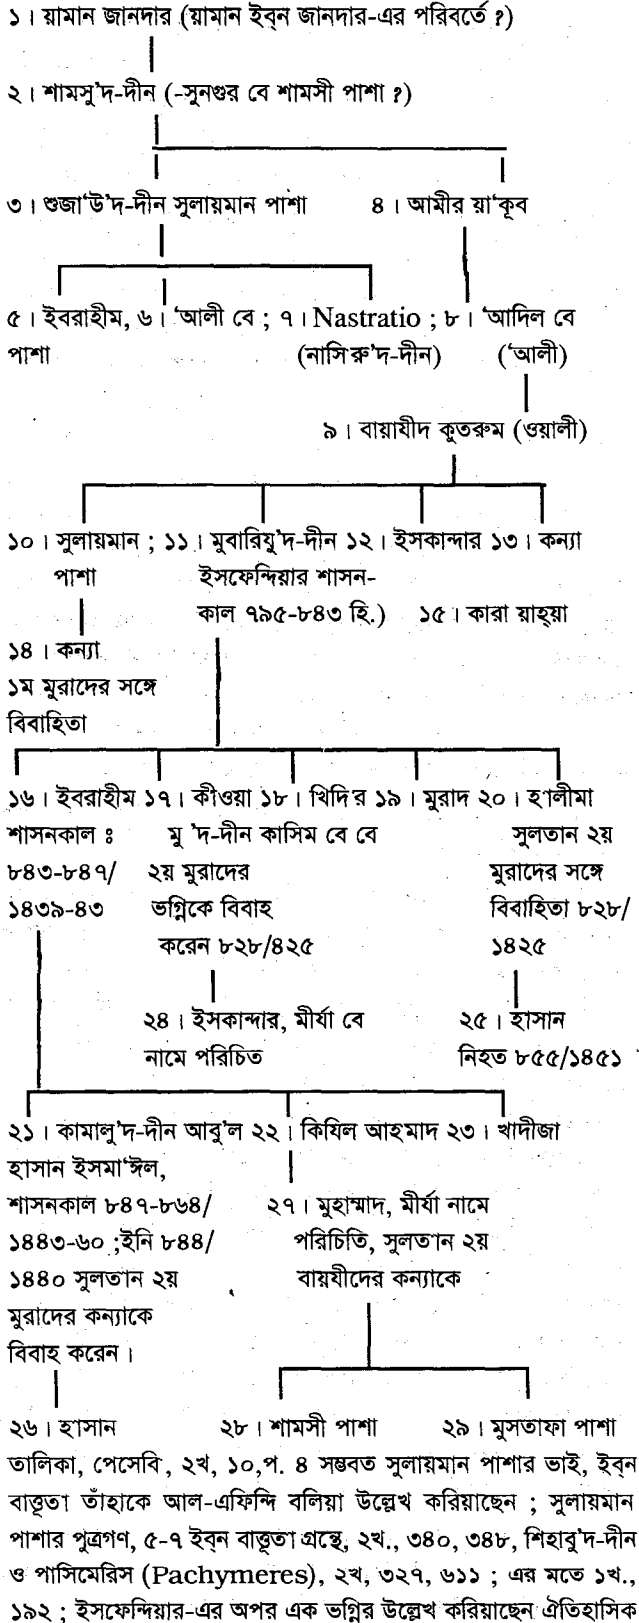 ১। য়ামান জানদার (য়ামান ইব্‌ন জানদার-এর পরিবর্তে ?)
২। শামসু'দ-দীন (-সুনগুর বে শামসী পাশা ?)
৩। শুজা'উ'দ-দীন সুলায়মান পাশা ৪। আমীর য়া'কূব
৫। ইবরাহীম, ৬। 'আলী বে ; ৭। Nastratio ; ৮। 'আদিল বে
পাশা (নাসিরু'দ-দীন) ('আলী)
৯। বায়াযীদ কুতরুম (ওয়ালী)
১০। সুলায়মান ; ১১। মুবারিযু'দ-দীন ১২। ইসকান্দার ১৩। কন্যা
পাশা ইসফেন্দিয়ার শাসন-
কাল ৭৯৫-৮৪৩ হি.) ১৫। কারা য়াহ্‌য়া
১৪। কন্যা
১ম মুরাদের সঙ্গে
বিবাহিতা
১৬। ইবরাহীম ১৭। কীওয়া ১৮। খিদির ১৯। মুরাদ ২০। হালীমা
শাসনকাল ঃ মু 'দ-দীন কাসিম বে বে সুলতান ২য়
৮৪৩-৮৪৭/ ২য় মুরাদের মুরাদের সঙ্গে
১৪৩৯-৪৩ ভগ্নিকে বিবাহ বিবাহিতা ৮২৮/
করেন ৮২৮/৪২৫ ১৪২৫
২৪। ইসকান্দার, মীর্যা বে ২৫। হাসান
নামে পরিচিত নিহত ৮৫৫/১৪৫১
২১। কামালু'দ-দীন আবু'ল ২২। কিযিল আহমাদ ২৩। খাদীজা
হাসান ইসমা'ঈল,
শাসনকাল ৮৪৭-৮৬৪/ ২৭। মুহাম্মাদ, মীর্যা নামে
১৪৪৩-৬০ ;ইনি ৮৪৪/ পরিচিতি, সুলতান ২য়
১৪৪০ সুলতান ২য় বায়যীদের কন্যাকে
মুরাদের কন্যাকে
বিবাহ করেন।
২৬। হাসান ২৮। শামসী পাশা ২৯। মুসতাফা পাশা
তালিকা, পেসেবি, ২খ, ১০,প. ৪ সম্ভবত সুলায়মান পাশার ভাই, ইব্‌ন
বাত্তূতা তাঁহাকে আল-এফিন্দি বলিয়া উল্লেখ করিয়াছেন ; সুলায়মান
পাশার পুত্রগণ, ৫-৭ ইব্‌ন বাত্তূতা গ্রন্থে, ২খ., ৩৪০, ৩৪৮, শিহাবু'দ-দীন
ও পাসিমেরিস (Pachymeres), ২খ, ৩২৭, ৬১১ ; এর মতে ১খ.,
১৯২ ; ইসফেন্দিয়ার-এর অপর এক ভগ্নির উল্লেখ করিয়াছেন ঐতিহাসিক